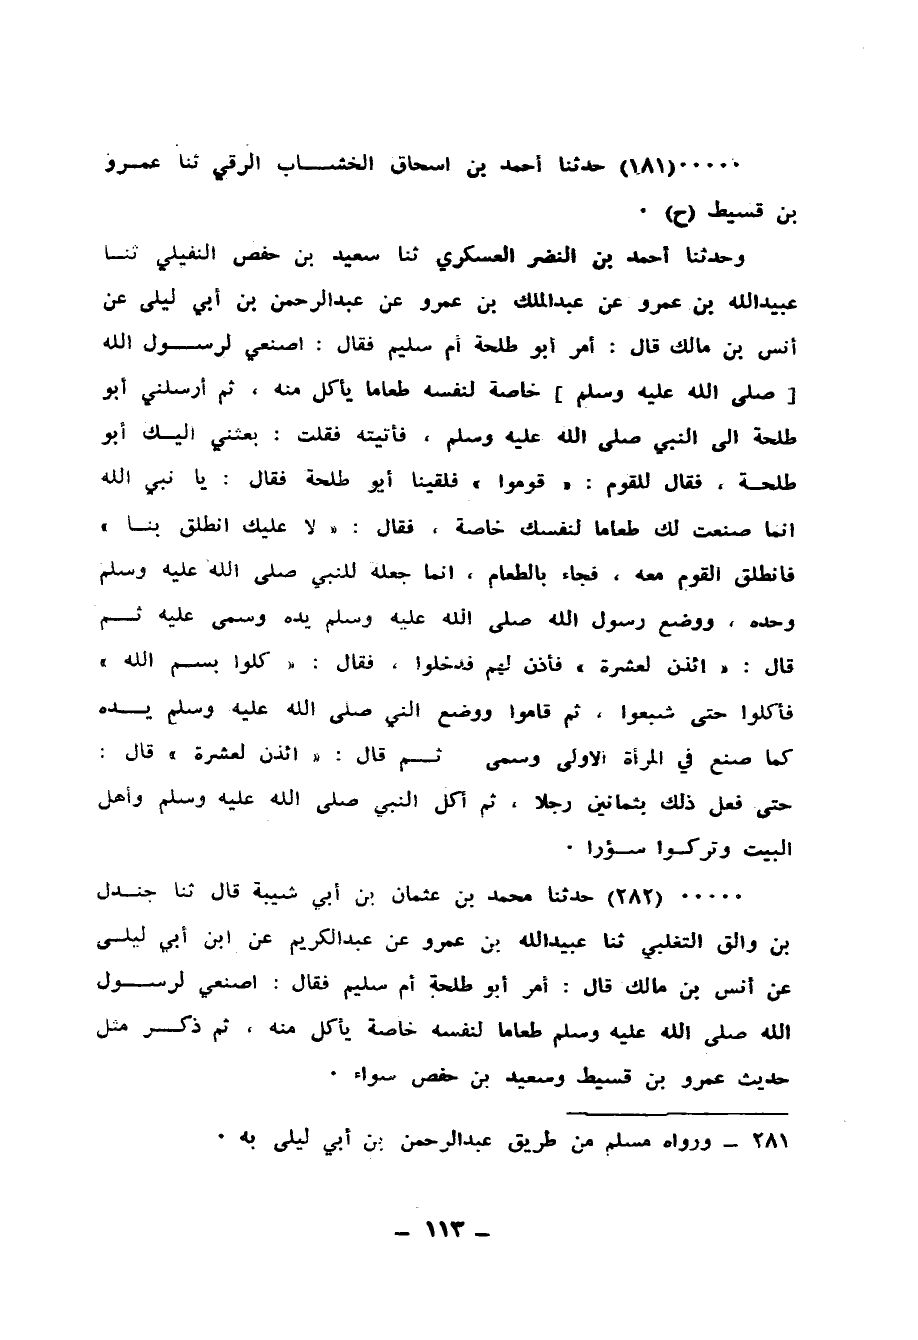 ٠٠٠٠٠(١٨١) حدثنا أحمد بن اسحاق الخشـــاب الرقي ثنا عمـرو
بن قسيط (ح) ٠
وحدثنا أحمد بن النضر العسكري ثنا سعيد بن حفص النفيلي ثنـا
عبيدالله بن عمرو عن عبدالملك بن عمرو عن عبدالرحمن بن أبي ليلى عن
أنس بن مالك قال : أمر أبو طلحة أم سليم فقال : اصنعي لرســـول الله
[ صلى الله عليه وسلم ] خاصة لنفسه طعاما يأكل منه ، ثم أرسلني أبو
طلحة الى النبي صلى الله عليه وسلم ، فأتيته فقلت : بعثني اليـك أبو
طلحـة ، فقال للقوم : « قوموا » فلقينا أبو طلحة فقال : يا نبي الله
انما صنعت لك طعاما لنفسك خاصة ، فقال : « لا عليك انطلق بنـا »
فانطلق القوم معه ، فجاء بالطعام ، انما جعله للنبي صلى الله عليه وسلم
وحده ، ووضع رسول الله صلى الله عليه وسلم يده وسمى عليه ثـــم
قال : « ائذن لعشرة » فأذن لهم فدخلوا ، فقال : « كلوا بســم الله »
فأكلوا حتى شبعوا ، ثم قاموا ووضع الني صلى الله عليه وسلم يـــده
كما صنع في المرأة الاولى وسمى ثـــم قال : « ائذن لعشرة » قال :
حتى فعل ذلك بثمانين رجلا ، ثم أكل النبي صلى الله عليه وسلم وأهل
البيت وتركـوا ســؤرا ٠
٠٠٠٠٠ (٢٨٢) حدثنا محمد بن عثمان بن أبي شيبة قال ثنا جنـدل
بن والق التغلبي ثنا عبيدالله بن عمرو عن عبدالكريم عن ابن أبي ليلـى
عن أنس بن مالك قال : أمر أبو طلحة أم سليم فقال : اصنعي لرســـول
الله صلى الله عليه وسلم طعاما لنفسه خاصة يأكل منه ، ثم ذكـــر مثل
حديث عمرو بن قسيط وسعيد بن حفص سواء ٠
٢٨١ ـ ورواه مسلم من طريق عبدالرحمن بن أبي ليلى به ٠
ـ ١١٣ ـ